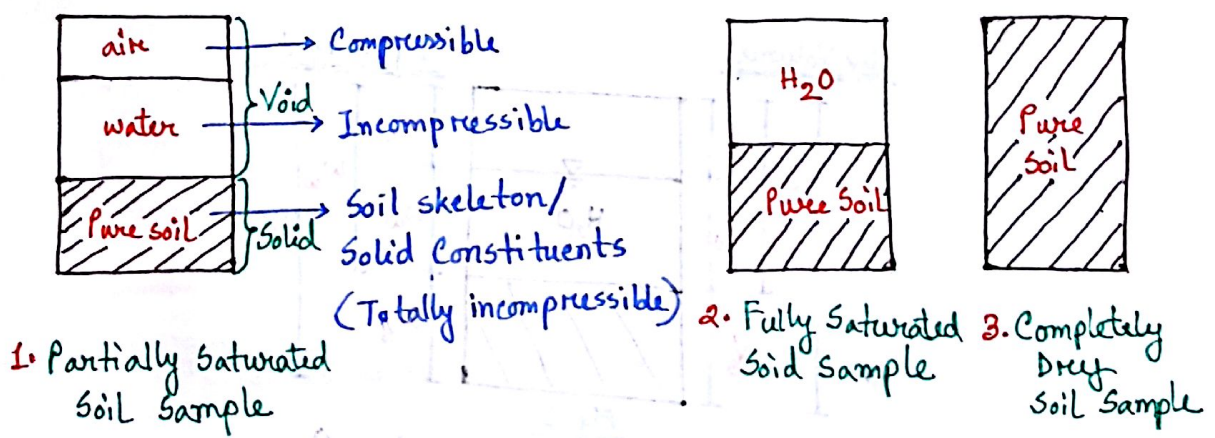 aire
Compressible
Void
water
Incompressible
Pure soil
Solid
Soil skeleton/
Solid Constituents
(Totally incompressible)
1. Partially Saturated
Soil Sample
H₂O
Puree Soil
2. Fully Saturated
Soid Sample
Pure
Soil
3. Completely
Drey
Soil Sample